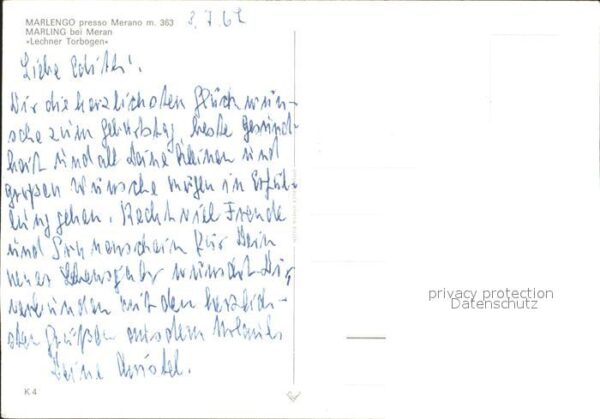 MARLENGO presso Merano m. 363
MARLING bei Meran
«Lechner Torbogen»
3.7.62
Liebe Edith!
Dir die herzlichsten Glückwün-
sche zum Geburtstag, beste Gesund-
heit und all Deine kleinen und
großen Wünsche mögen in Erfül-
lung gehen. Recht viel Freude
und Sonnenschein für Dein
neues Lebensjahr wünscht Dir,
verbunden mit den herzlich-
sten Grüßen aus dem Urlaub
Deine Christel.
K 4
privacy protection
Datenschutz